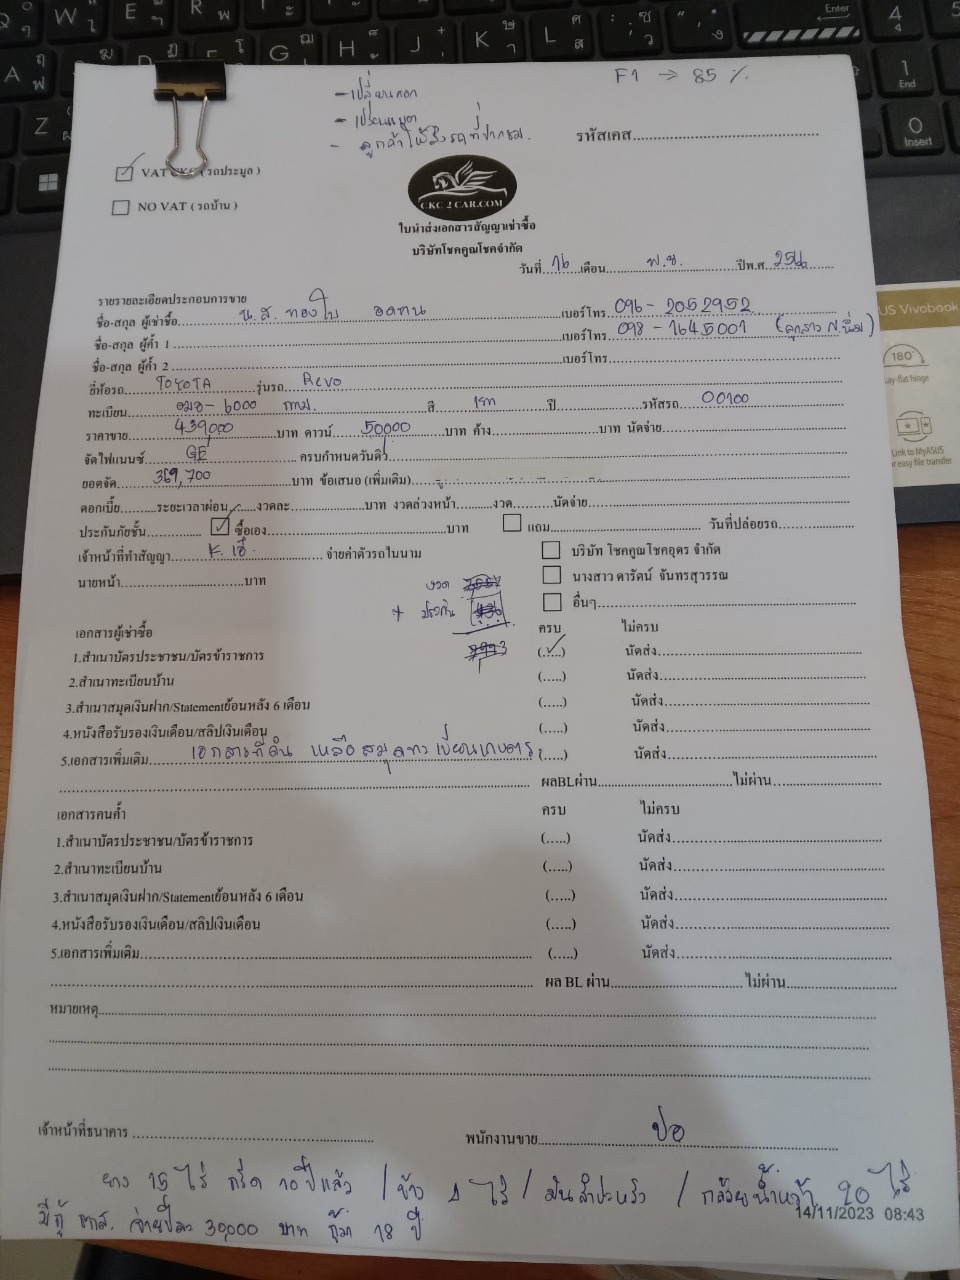 F1 → 85 %
- เปลี่ยนดอก
-
- ลูกค้าให้ส่งรถที่ปากชม.
รหัสเคส
✓ VAT CKC ( รถประมูล )
NO VAT ( รถบ้าน )
CKC 2 CAR.COM
ใบนำส่งเอกสารสัญญาเช่าซื้อ
บริษัทโชคคูณโชคจำกัด
วันที่ 16 เดือน พ.ย. ปีพ.ศ. 256
รายรายละเอียดประกอบการขาย
ชื่อ-สกุล ผู้เช่าซื้อ น.ส. ทองใบ อดทน เบอร์โทร 096-2052952
ชื่อ-สกุล ผู้ค้ำ 1 เบอร์โทร 098-1645001 (ลูกสาว น.นิ่ม)
ชื่อ-สกุล ผู้ค้ำ 2 เบอร์โทร
ยี่ห้อรถ TOYOTA รุ่นรถ Revo
ทะเบียน 6000 กทม. สี เทา ปี รหัสรถ 00100
ราคาขาย 439,000 บาท ดาวน์ 50,000 บาท ค้าง บาท นัดจ่าย
จัดไฟแนนซ์ GE ครบกำหนดวันดิว
ยอดจัด 369,700 บาท ข้อเสนอ (เพิ่มเติม)
ดอกเบี้ย ระยะเวลาผ่อน งวดละ บาท งวดล่วงหน้า งวด นัดจ่าย
ประกันภัยชั้น ✓ ซื้อเอง บาท แถม วันที่ปล่อยรถ
เจ้าหน้าที่ทำสัญญา K. เอ๋. จ่ายค่าตัวรถในนาม บริษัท โชคคูณโชคอุดร จำกัด
นายหน้า บาท นางสาว ดารัตน์ จันทรสุวรรณ
งวด
อื่นๆ
+ ประกัน
เอกสารผู้เช่าซื้อ ครบ ไม่ครบ
1.สำเนาบัตรประชาชน/บัตรข้าราชการ (..✓..) นัดส่ง
2.สำเนาทะเบียนบ้าน (.....) นัดส่ง
3.สำเนาสมุดเงินฝาก/Statementย้อนหลัง 6 เดือน (.....) นัดส่ง
4.หนังสือรับรองเงินเดือน/สลิปเงินเดือน (.....) นัดส่ง
5.เอกสารเพิ่มเติม เอกสารที่ดิน เหลือสมุดทะเบียนเกษตร (.....) นัดส่ง
ผลBLผ่าน ไม่ผ่าน
เอกสารคนค้ำ ครบ ไม่ครบ
1.สำเนาบัตรประชาชน/บัตรข้าราชการ (.....) นัดส่ง
2.สำเนาทะเบียนบ้าน (.....) นัดส่ง
3.สำเนาสมุดเงินฝาก/Statementย้อนหลัง 6 เดือน (.....) นัดส่ง
4.หนังสือรับรองเงินเดือน/สลิปเงินเดือน (.....) นัดส่ง
5.เอกสารเพิ่มเติม (.....) นัดส่ง
ผล BL ผ่าน ไม่ผ่าน
หมายเหตุ
เจ้าหน้าที่ธนาคาร พนักงานขาย ปอ
ยาง 15 ไร่ กรีด 10 ปีแล้ว / ข้าว 4 ไร่ / มันสำปะหลัง / กล้วยน้ำหว้า 20 ไร่
มีกู้ ธกส. จ่ายปีละ 30,000 บาท กู้มา 18 ปี
14/11/2023 08:43
US Vivobook
180°
Lay-flat hinge
Link to MyASUS
or easy file transfer
W E R T Y U I O P Enter 4
A D F G H J K L
Z 1 End
0 Insert